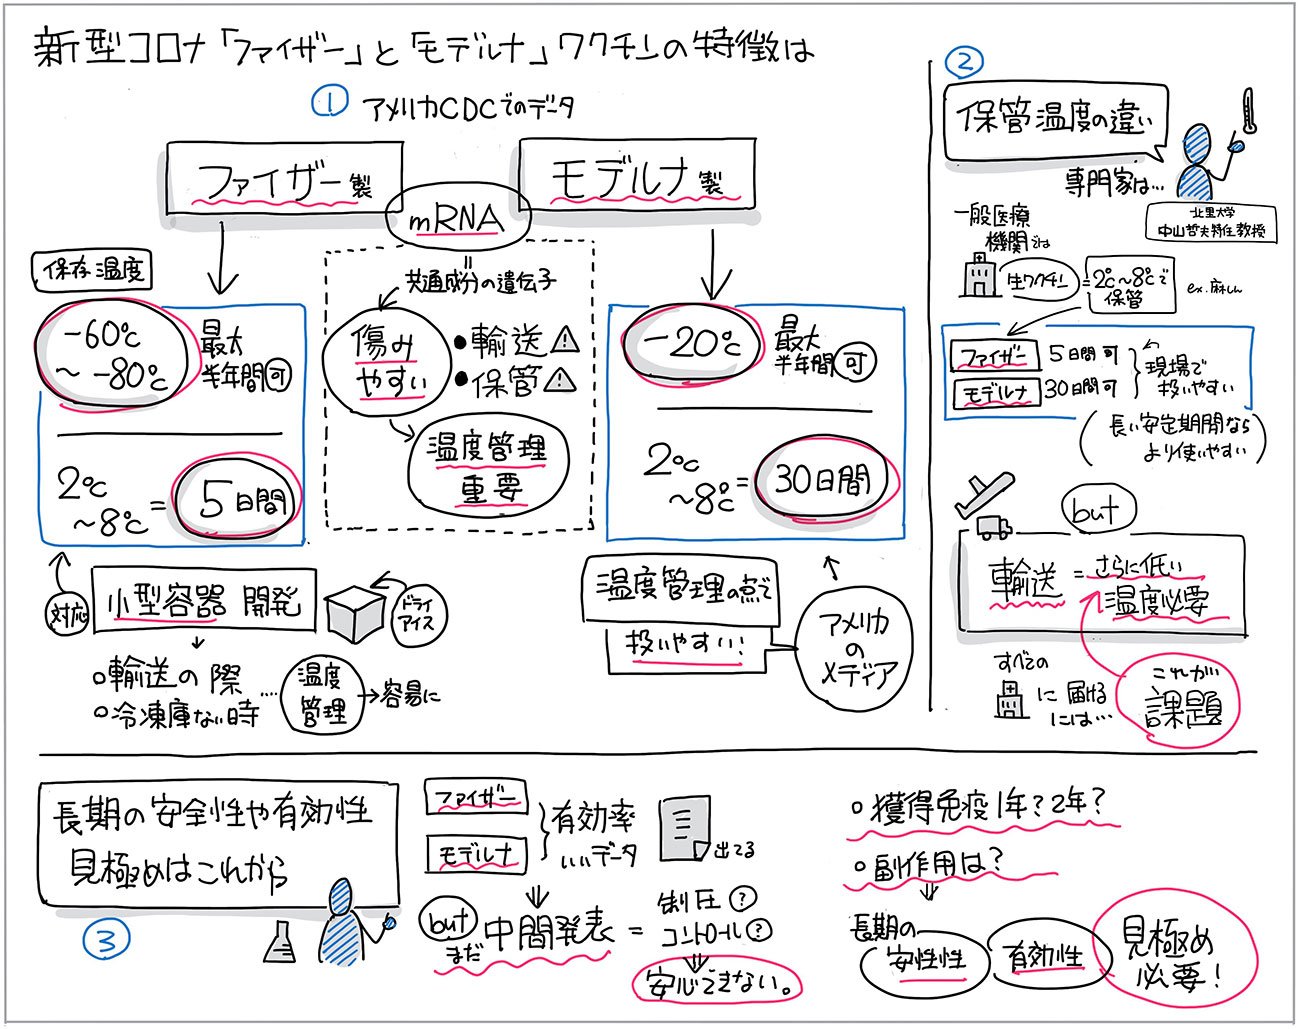 新型コロナ「ファイザー」と「モデルナ」ワクチンの特徴は
① アメリカCDCでのデータ
ファイザー製
モデルナ製
mRNA
=
共通成分の遺伝子
傷み
やすい
・輸送⚠
・保管⚠
温度管理
重要
保存温度
-60℃
～-80℃
最大
半年間可
2℃
～8℃=
5日間
-20℃
最大
半年間可
2℃
～8℃=
30日間
対応
小型容器 開発
ドライ
アイス
○輸送の際
○冷凍庫ない時
....
温度
管理
→容易に
温度管理の点で
扱いやすい!
アメリカ
の
メディア
②
保管温度の違い
専門家は…
北里大学
中山哲夫特任教授
一般医療
機関では
生ワクチン
=2℃～8℃で
保管
ex.麻しん
ファイザー 5日間可
モデルナ 30日間可
現場で
扱いやすい
(長い安定期間なら
より使いやすい)
but
輸送=さらに低い
温度必要
すべての
に届ける
には…
これが
課題
長期の安全性や有効性
見極めはこれから
③
ファイザー
モデルナ
有効率
いいデータ
出てる
but
まだ
中間発表=
制圧?
コントロール?
安心できない。
○獲得免疫1年?2年?
○副作用は?
長期の
安性性
有効性
見極め
必要!